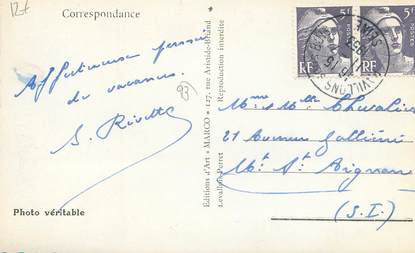 12€
Correspondance
Affectueuse pensée
de vacances.
S. Rivette
93
Photo véritable
Éditions d'Art "MARCO" 127, rue Aristide-Briand
Levallois-Perret
Reproduction interdite
5F
POSTES
RF
5F
POSTES
RF
PAVILLONS
Mme Mlle Chevalier
21 Avenue Galliéni
Mt St Aignan
(S.I.)